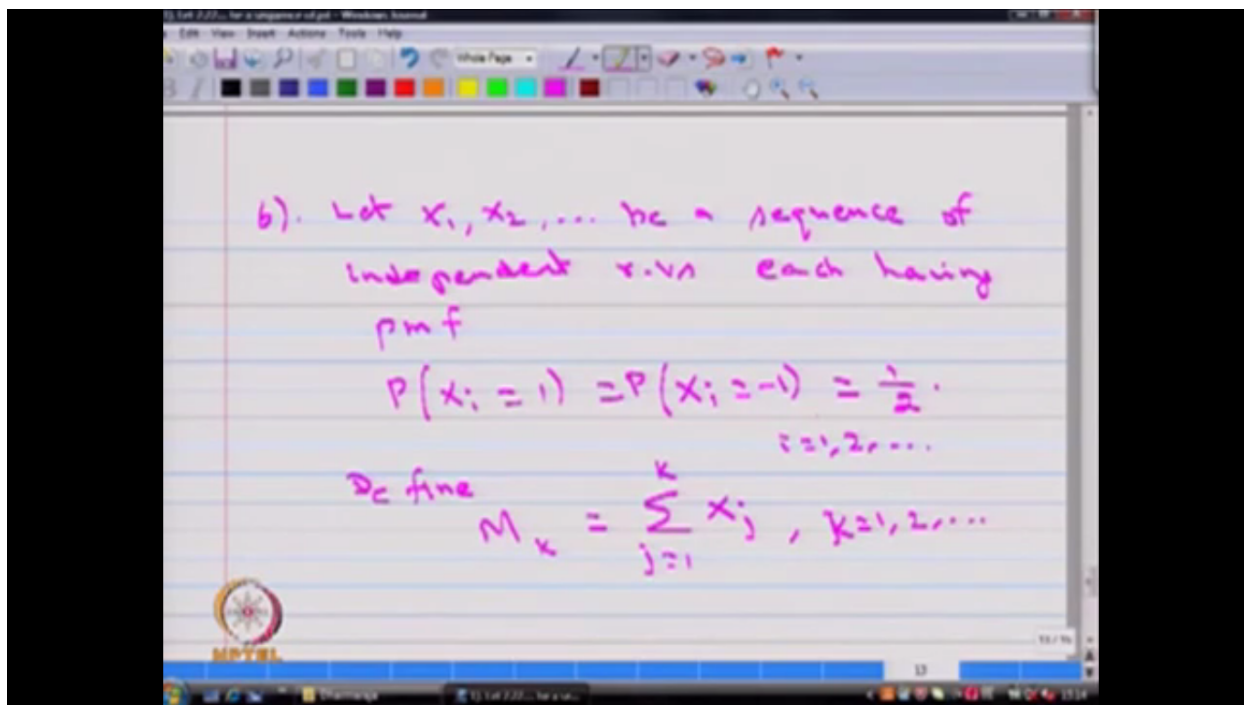 Edit View Insert Actions Tools Help
Whole Page
6). Let X1, X2, ... be a sequence of
independent r.vs each having
pmf
P(Xi = 1) = P(Xi = -1) = 1/2.
i=1,2,...
Define
M_k = Σ_{j=1}^{k} X_j, k=1,2,...
NPTEL
13
15:14